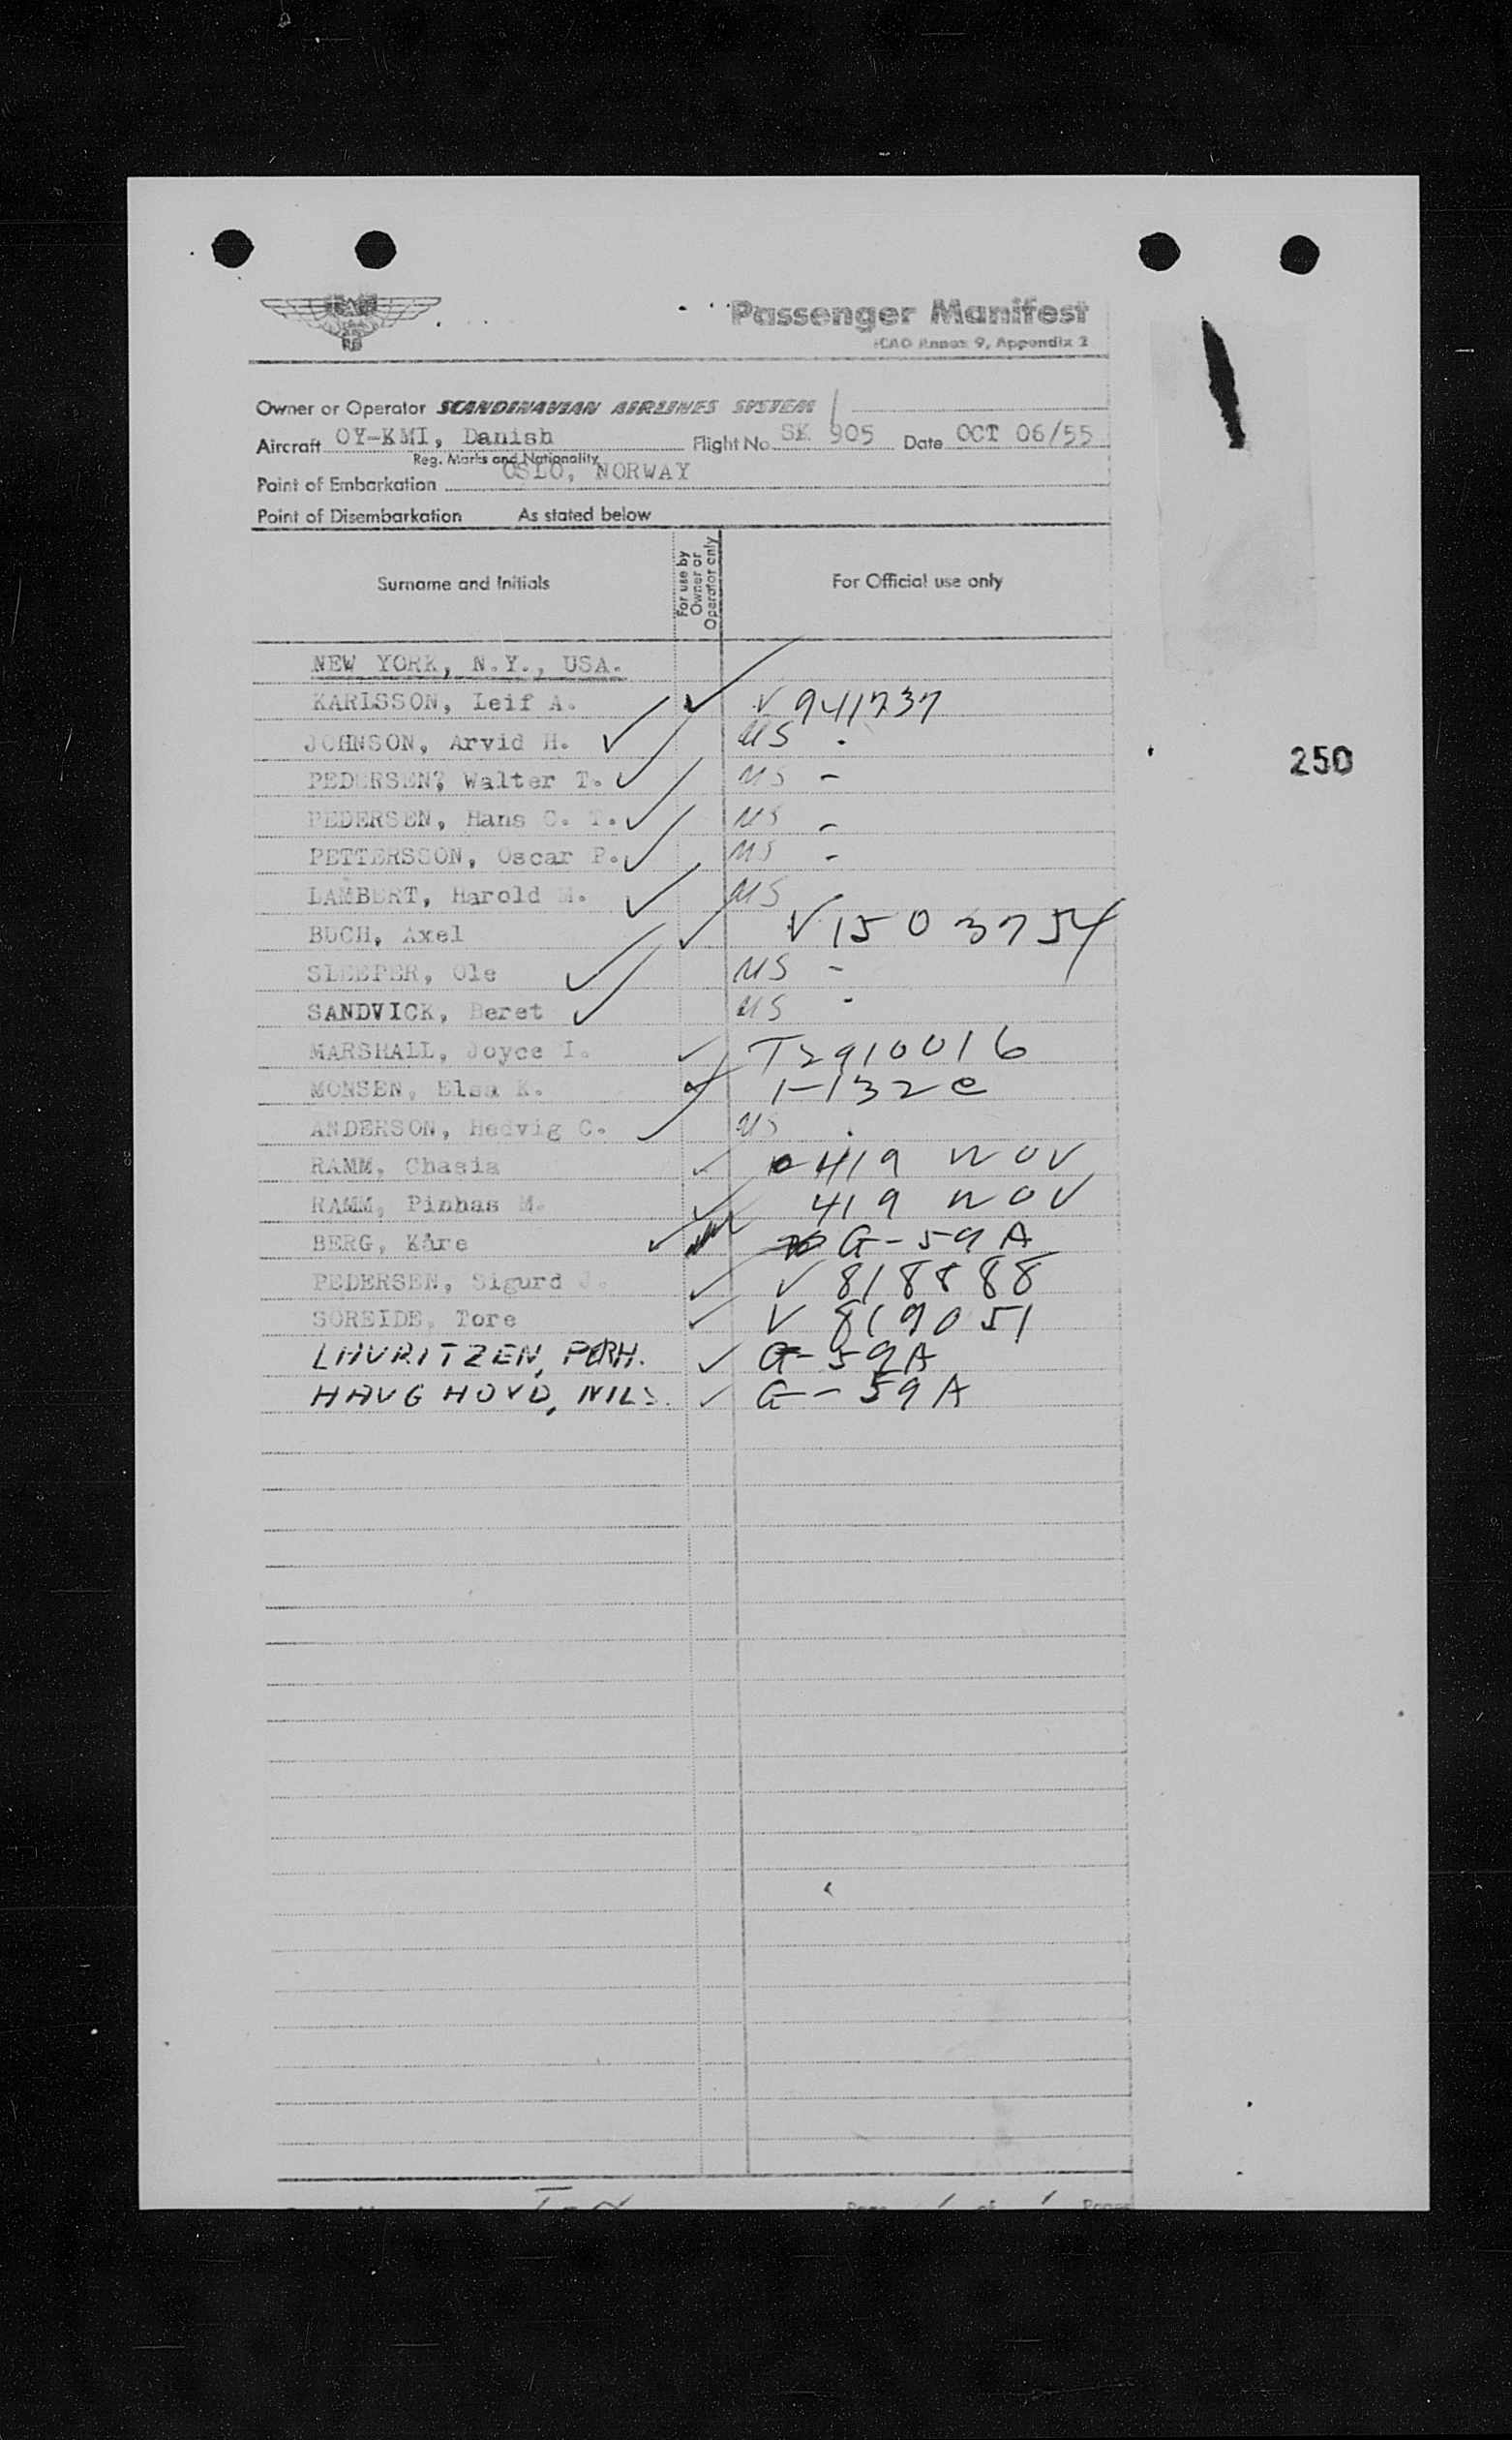 Passenger Manifest
ICAO Annex 9, Appendix 2
Owner or Operator SCANDINAVIAN AIRLINES SYSTEM
Aircraft OY-KMI, Danish Flight No. SK 905 Date OCT 06/55
Reg. Marks and Nationality
Point of Embarkation OSLO, NORWAY
Point of Disembarkation As stated below
Surname and Initials For use by Owner or Operator only For Official use only
NEW YORK, N.Y., USA.
KARLSSON, Leif A. V 941737
JOHNSON, Arvid H. US
PEDERSEN, Walter T. US -
250
PEDERSEN, Hans C. T. US -
PETTERSSON, Oscar P. US -
LAMBERT, Harold M. US -
BUCH, Axel V 1503754
SLEEPER, Ole US -
SANDVICK, Beret US -
MARSHALL, Joyce I. T2910016
MONSEN, Elsa K. 1-132e
ANDERSON, Hedvig C. US
RAMM, Chasia 419 NOV
RAMM, Pinhas M. 419 NOV
BERG, Kåre G-59A
PEDERSEN, Sigurd J. V 818888
SOREIDE, Tore V 819051
LAURITZEN, PERH. G-59A
HAUGHOVD, NILS. G-59A